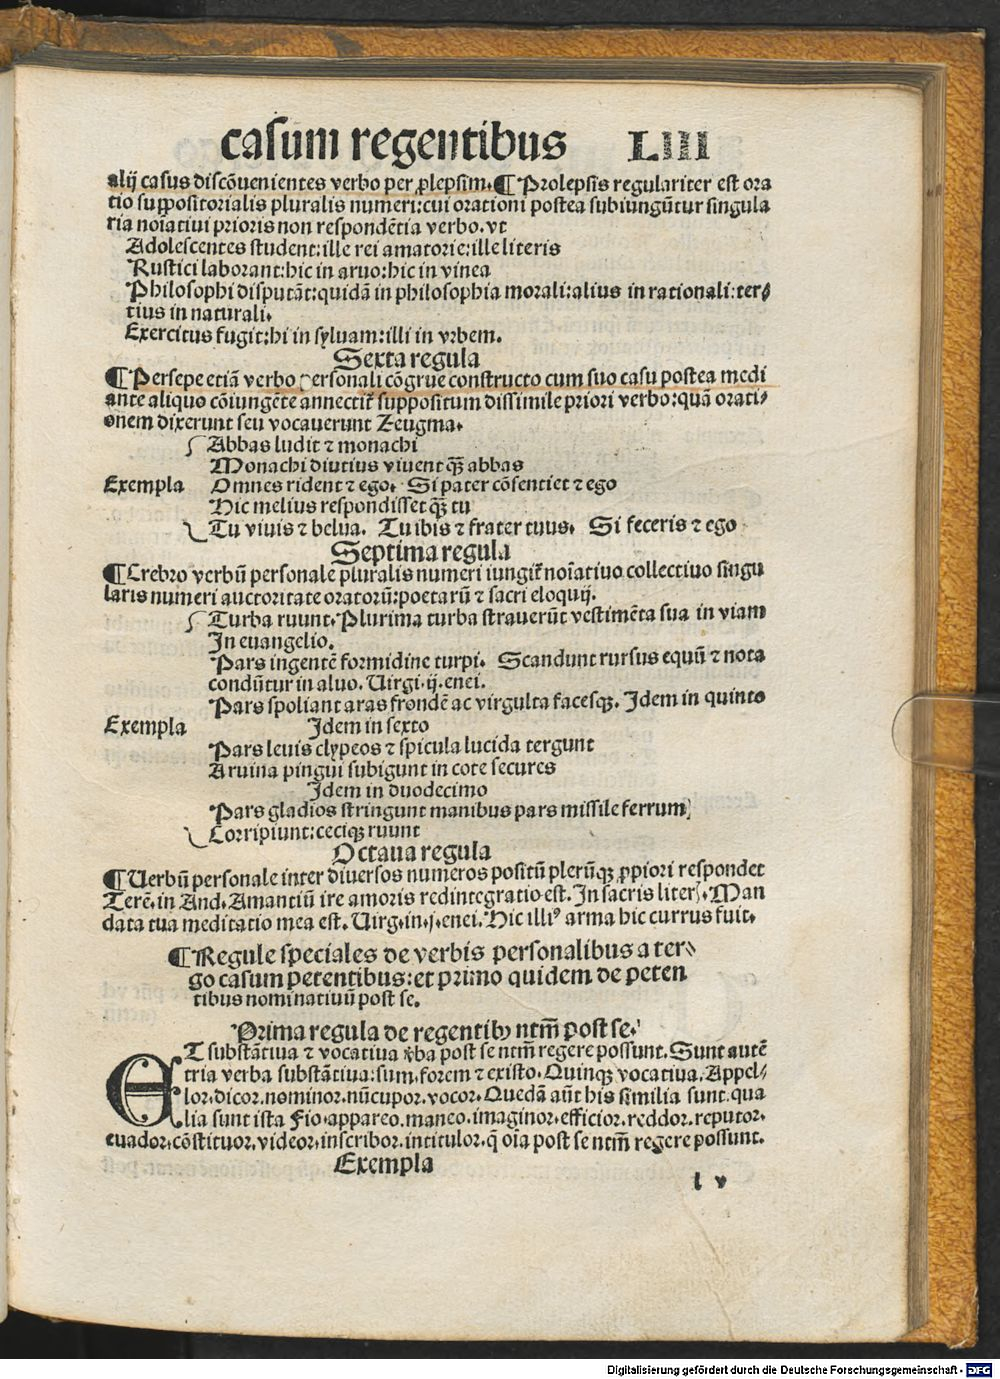 casum regentibus LIII
alij casus discõuenientes verbo per ꝓlepsim.¶ Prolepsis regulariter est ora
tio suppositorialis pluralis numeri:cui orationi postea subiungũtur singula
ria noĩatiui prioris non respondẽtia verbo.vt
Adolescentes student:ille rei amatorie:ille literis
Rustici laborant:hic in aruo:hic in vinea
Philosophi disputãt:quidã in philosophia morali:alius in rationali:ter⸗
tius in naturali.
Exercitus fugit:hi in syluam:illi in vrbem.
Sexta regula
¶Persepe etiã verbo personali cõgrue constructo cum suo casu postea medi
ante aliquo cõiungẽte annectit᷑ suppositum dissimile priori verbo:quã orati⸗
onem dixerunt seu vocauerunt Zeugma.
Abbas ludit ⁊ monachi
Monachi diutius viuent q̃ꝫ abbas
Exempla Omnes rident ⁊ ego. Si pater cõsentiet ⁊ ego
Hic melius respondisset q̃ꝫ tu
Tu viuis ⁊ belua. Tu ibis ⁊ frater tuus. Si feceris ⁊ ego
Septima regula
¶Crebro verbũ personale pluralis numeri iungit᷑ noĩatiuo collectiuo singu
laris numeri auctoritate oratorũ:poetarũ ⁊ sacri eloquij.
Turba ruunt.Plurima turba strauerũt vestimẽta sua in viam
In euangelio.
Pars ingentẽ formidine turpi. Scandunt rursus equũ ⁊ nota
condũtur in aluo. Uirgi.ij.enei.
Pars spoliant aras frondẽ ac virgulta facesqꝫ. Idem in quinto
Exempla Idem in sexto
Pars leuis clypeos ⁊ spicula lucida tergunt
Aruina pingui subigunt in cote secures
Idem in duodecimo
Pars gladios stringunt manibus pars missile ferrum
Corripiunt:ceciqꝫ ruunt
Octaua regula
¶Uerbũ personale inter diuersos numeros positũ plerũqꝫ ꝓpiori respondet
Terẽ.in And.Amantiũ ire amoris redintegratio est. In sacris liter̃.Man
data tua meditatio mea est. Uirg.in.j.enei.Hic illiꝰ arma hic currus fuit.
¶Regule speciales de verbis personalibus a ter⸗
go casum petentibus:et primo quidem de peten
tibus nominatiuũ post se.
Prima regula de regentibꝫ ntm̃ post se.
ET substãtiua ⁊ vocatiua v̾ba post se ntm̃ regere possunt.Sunt autẽ
tria verba substãtiua:sum.forem ⁊ existo.Quinqꝫ vocatiua.Appel⸗
lor.dicor.nominor.nũcupor.vocor.Quedã aũt his similia sunt.qua
lia sunt ista Fio.appareo.maneo.imaginor.efficior.reddor.reputor.
euador.cõstituor.videor.inscribor.intitulor.q̃ oĩa post se ntm̃ regere possunt.
Exempla
l v
Digitalisierung gefördert durch die Deutsche Forschungsgemeinschaft - DFG